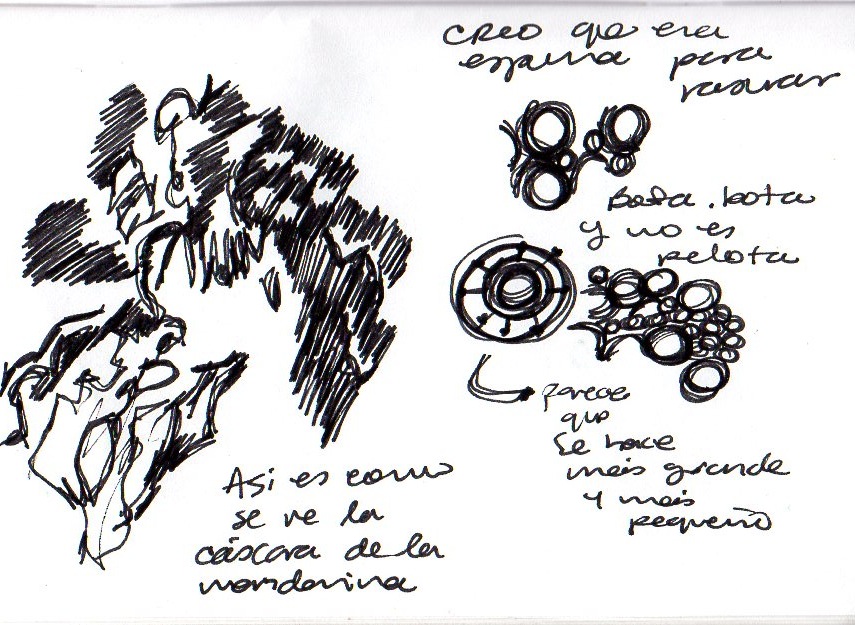 CREO que era
espuma para
rasurar
Bota, bota
y no es
pelota
parece
que
se hace
más grande
y más
pequeño
Así es como
se ve la
cáscara de la
mandarina